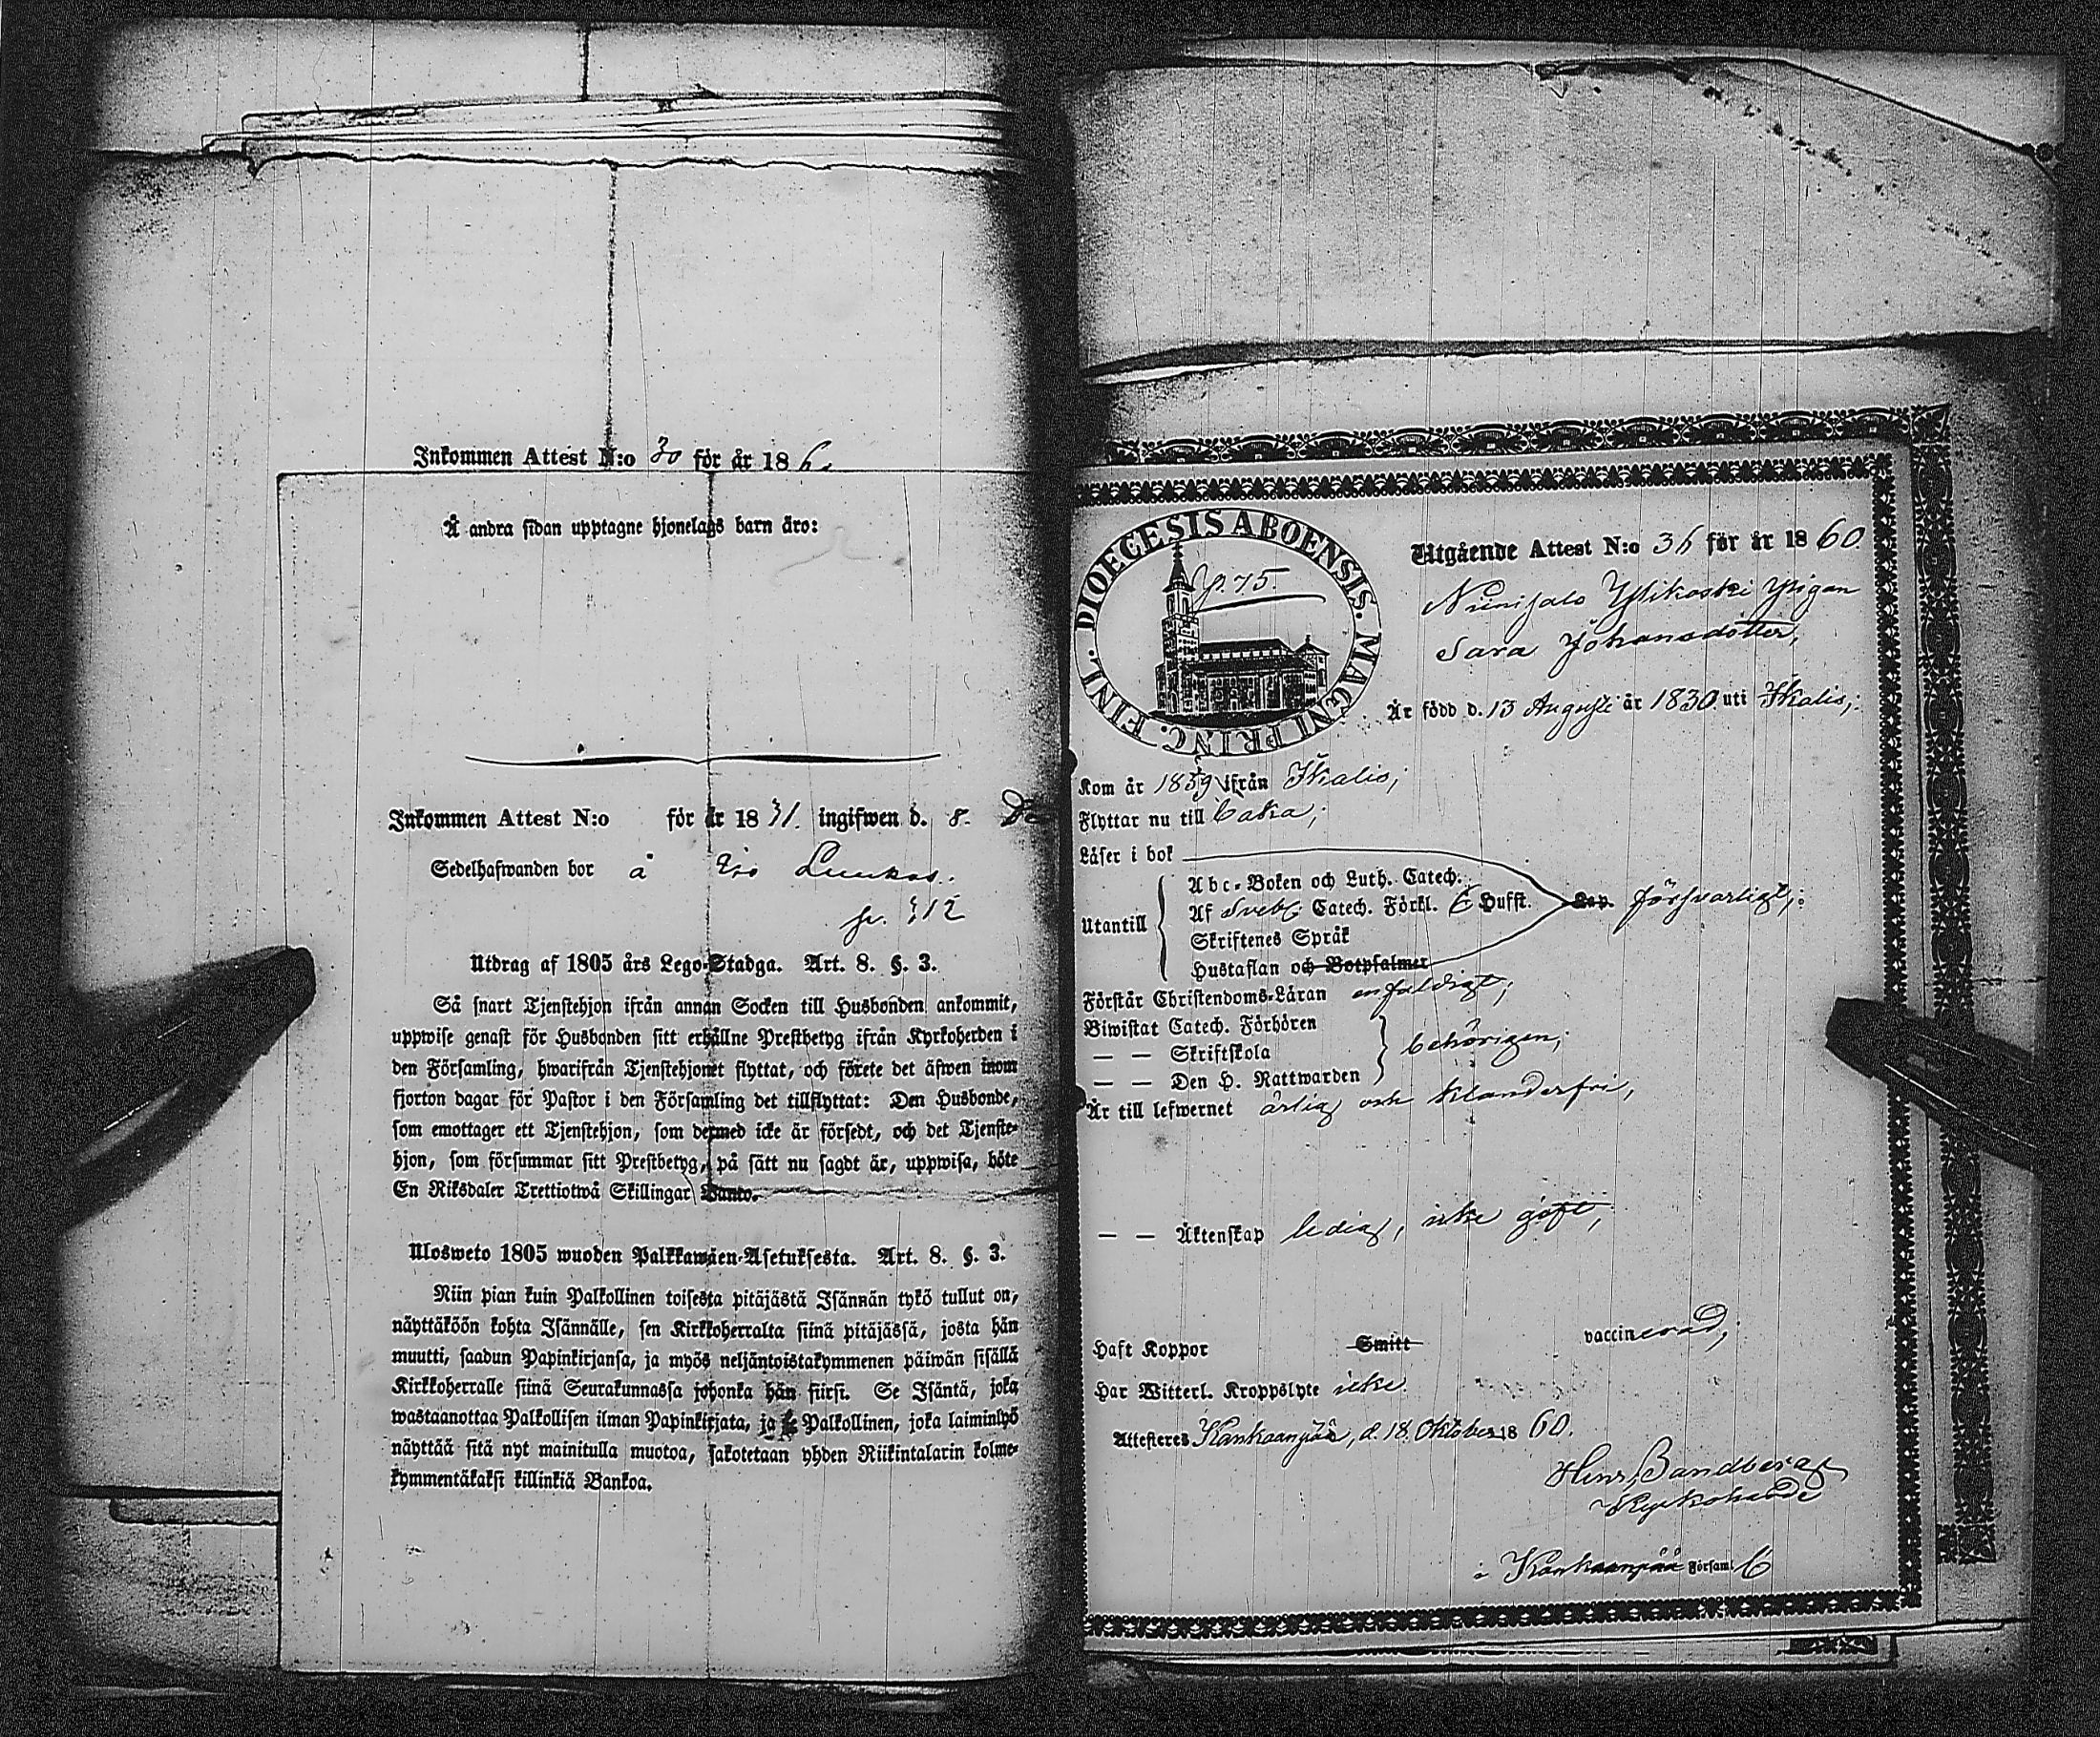 Inkommen Attest N:o 30 för år 186
Å andra sidan upptagne hjonelags barn äro:
Inkommen Attest N:o för år 18 31. ingifwen d. 8.
Sedelhafwanden bor å
312
Utdrag af 1805 års Lego-Stadga. Art. 8. §. 3.
Så snart Tjenstehjon ifrån annan Socken till Husbonden ankommit,
uppwise genast för Husbonden sitt erhållne Prestbetyg ifrån Kyrkoherden i
den Församling, hwarifrån Tjenstehjonet flyttat, och förete det äfwen inom
fjorton dagar för Pastor i den Församling det tillflyttat: Den Husbonde,
som emottager ett Tjenstehjon, som dermed icke är försedt, och det Tjenste-
hjon, som försummar sitt Prestbetyg, på sätt nu sagdt är, uppwisa, böte
En Riksdaler Trettiotwå Skillingar Banko.
Ulosweto 1805 wuoden Palkkawäen-Asetuksesta. Art. 8. §. 3.
Niin pian kuin Palkollinen toisesta pitäjästä Isännän tykö tullut on,
näyttäköön kohta Isännälle, sen Kirkkoherralta siinä pitäjässä, josta hän
muutti, saadun Papinkirjansa, ja myös neljäntoistakymmenen päiwän sisällä
Kirkkoherralle siinä Seurakunnassa johonka hän siirsi. Se Isäntä, joka
wastaanottaa Palkollisen ilman Papinkirjata, ja se Palkollinen, joka laiminlyö
näyttää sitä nyt mainitulla muotoa, sakotetaan yhden Riikintalarin kolme-
kymmentäkaksi killinkiä Bankoa.
DIOECESIS ABOENSIS. MAGNI PRINC. FINL.
p. 75.
Utgående Attest N:o 36 för år 1860.
Niinisalo Ylikoski Pigan
Sara Johansdotter,
Är född d. 13 Augusti år 1830 uti Ikalis;
Kom år 1859 ifrån Ikalis;
Flyttar nu till
Läser i bok
Utantill
Abc-Boken och Luth. Catech.
Af Sveb. Catech. Förkl. Hufst.
försvarligt;
Skriftenes Språk
Hustaflan och Botpsalmer
Förstår Christendoms-Läran enfaldigt;
Biwistat Catech. Förhören
— — Skriftskola
behörigen;
— — Den H. Nattwarden
Är till lefwernet ärlig och klanderfri,
— — Äktenskap ledig, icke gift,
Haft Koppor Smitt vaccinerad,
Har Witterl. Kroppslyte icke.
Attesteres Kankaanpää, d. 18. Oktober 1860.
Kyrkoherde
i Kankaanpää Församl